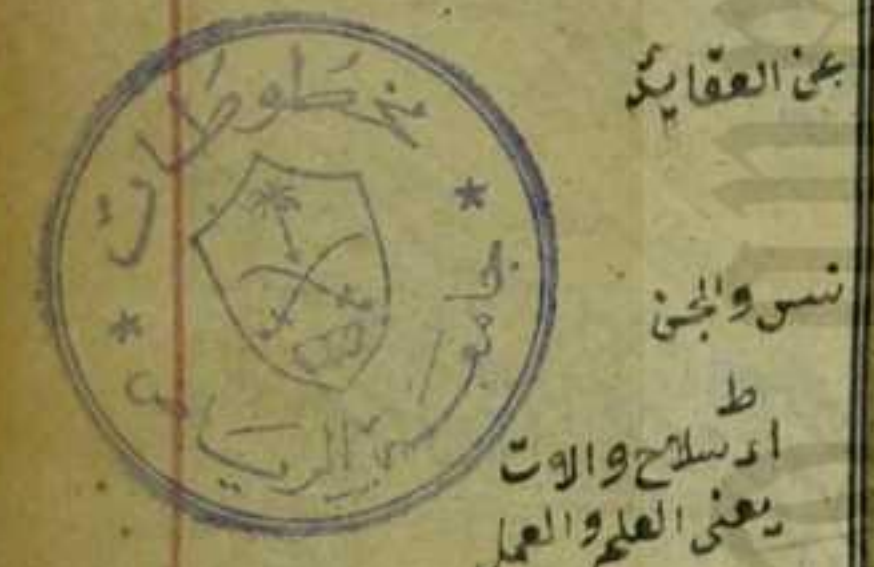 مخطوطات
جامعة الرياض
عن العقايد
نس والجن
ط
سلاح والات
يعنى العلم والعمل